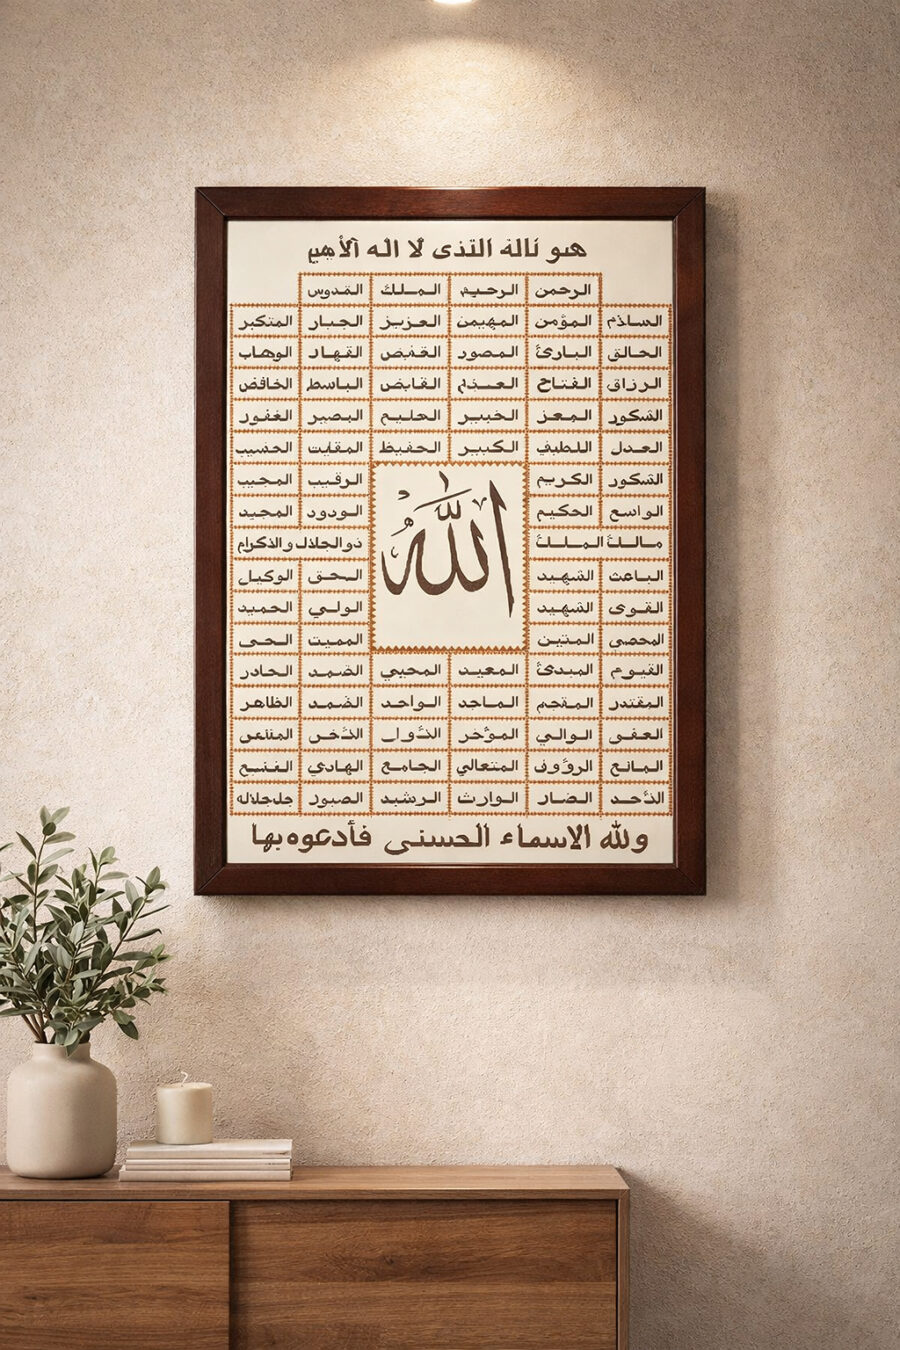 هو ناله التذى لا اله الأهيم
الرحمن الرحيم الملك القدوس
الساذم المؤمن المهيمن العزيز الجبار المتكبر
الحالق البارئ المصور القهار الوهاب
الرزاق الفتاح العذم القابض الباسط الخافض
الشكور المعز الخبير الحليم البصير الغفور
العدل اللطيف الكبير الحفيظ المقايت الحسيب
الشكور الكريم الرقيب المجيب
الواسع الحكيم الله الودود المجيد
مالك الملك ذو الجلال والاكرام
الباعث الشهيد الحق الوكيل
القوى الشهيد الولي الحميد
المحصى المتين المميت الحى
القيوم المبدئ المعيد المحيي الصمد الحادر
المقتدر الماجد الواحد الضمد الظاهر
العفر الوالي المؤخر
المانع الرؤوف المتعالي الجامع الهادي
الضار الوارث الرشيد الصبور جلجلاله
ولله الاسماء الحسنى فأدعوه بها